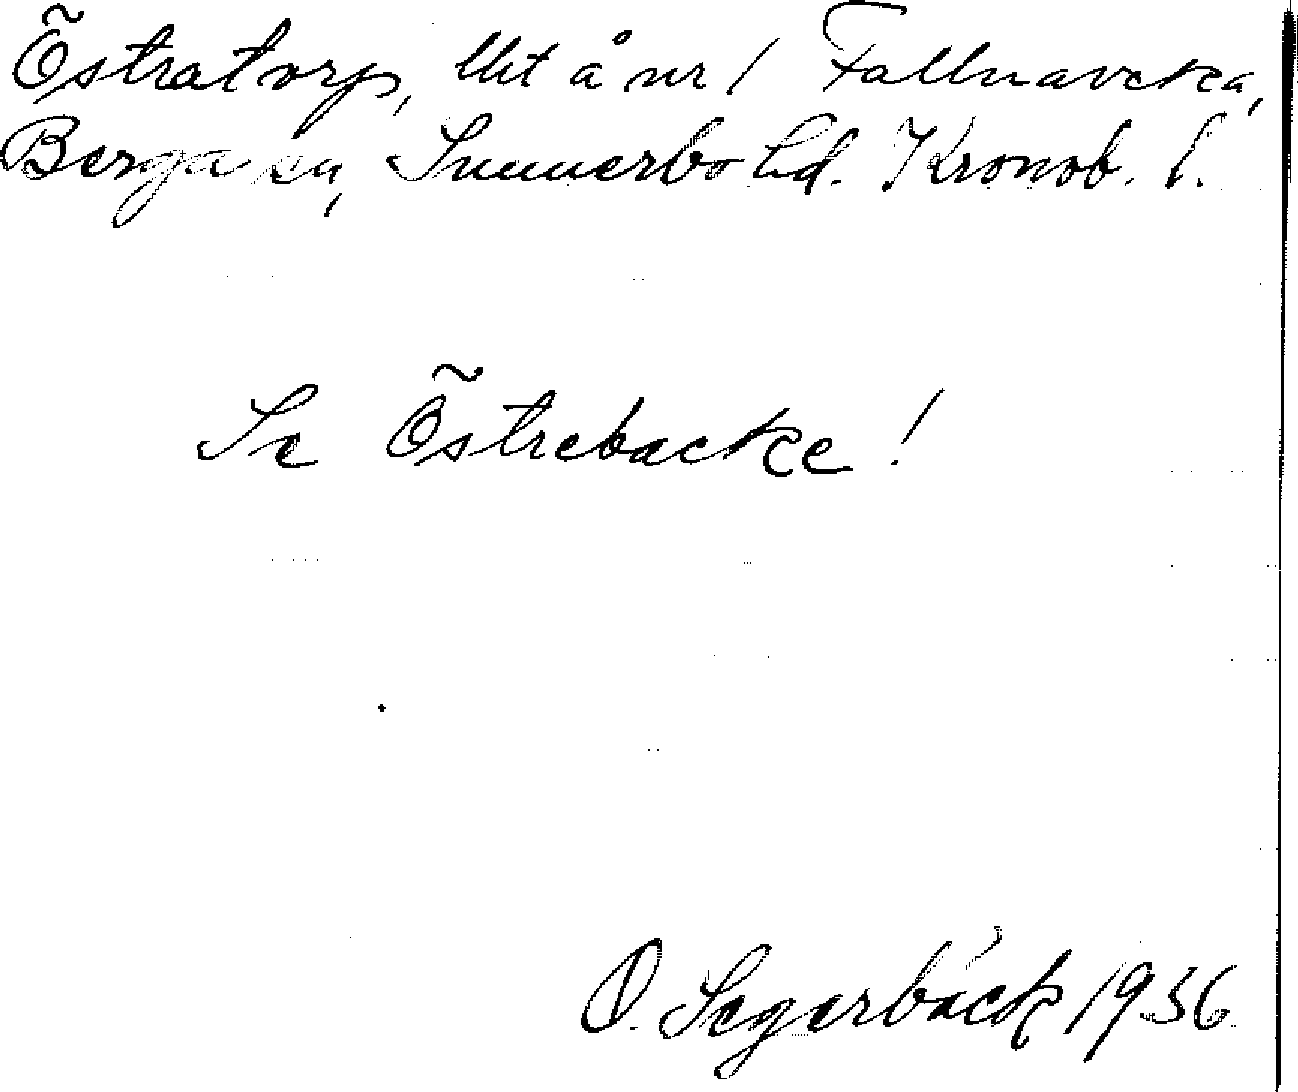 Östratorp, lht å nr 1 Fallnaveka,
Berga sn, Sunnerbo hd. Kronob. l.
Se Östrebacke!
O. Segerbäck 1936